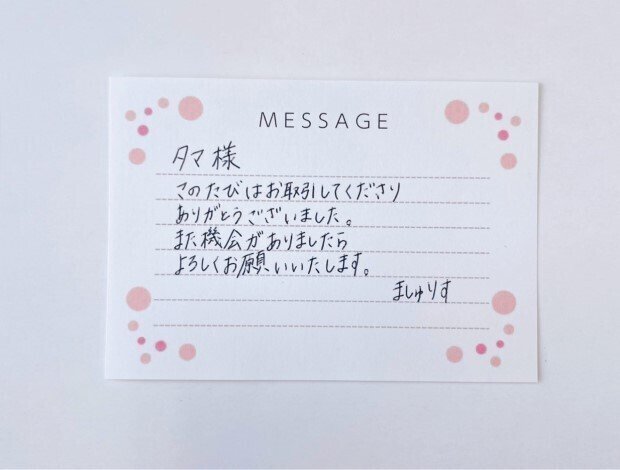 MESSAGE
タマ様
このたびはお取引してくださり
ありがとうございました。
また機会がありましたら
よろしくお願いいたします。
ましゅりす